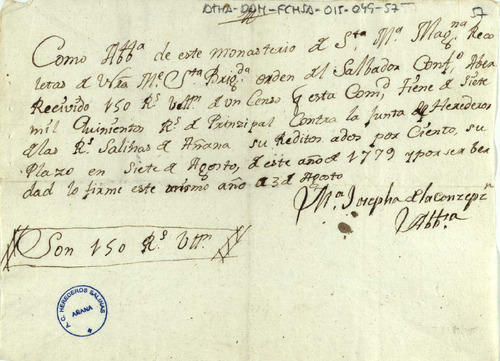 DHA-DDM-FCHSA-015-049-57
57
Como Abb.a de este monasterio de S.ta M.a Mag.na Reco
letas de Ntra M.e S.ta Brig.da orden del Salbador Conf.o Aber
Recivido 150 R.s V.llon de un Censo q esta Com.d tiene de Siete
mil Quinientos R.s de Principal Contra la Junta de Herederos
de las R.s Salinas de Añana su Reditos ados por Ciento, su
Plazo en Siete de Agosto, de este año de 1779 y por ser ber
dad lo firme este mismo año a 3 de Agosto
M.a Josepha de la Conzepz.n
Abb.a
Son 150 R.s V.llon
A.C. HEREDEROS SALINAS
AÑANA